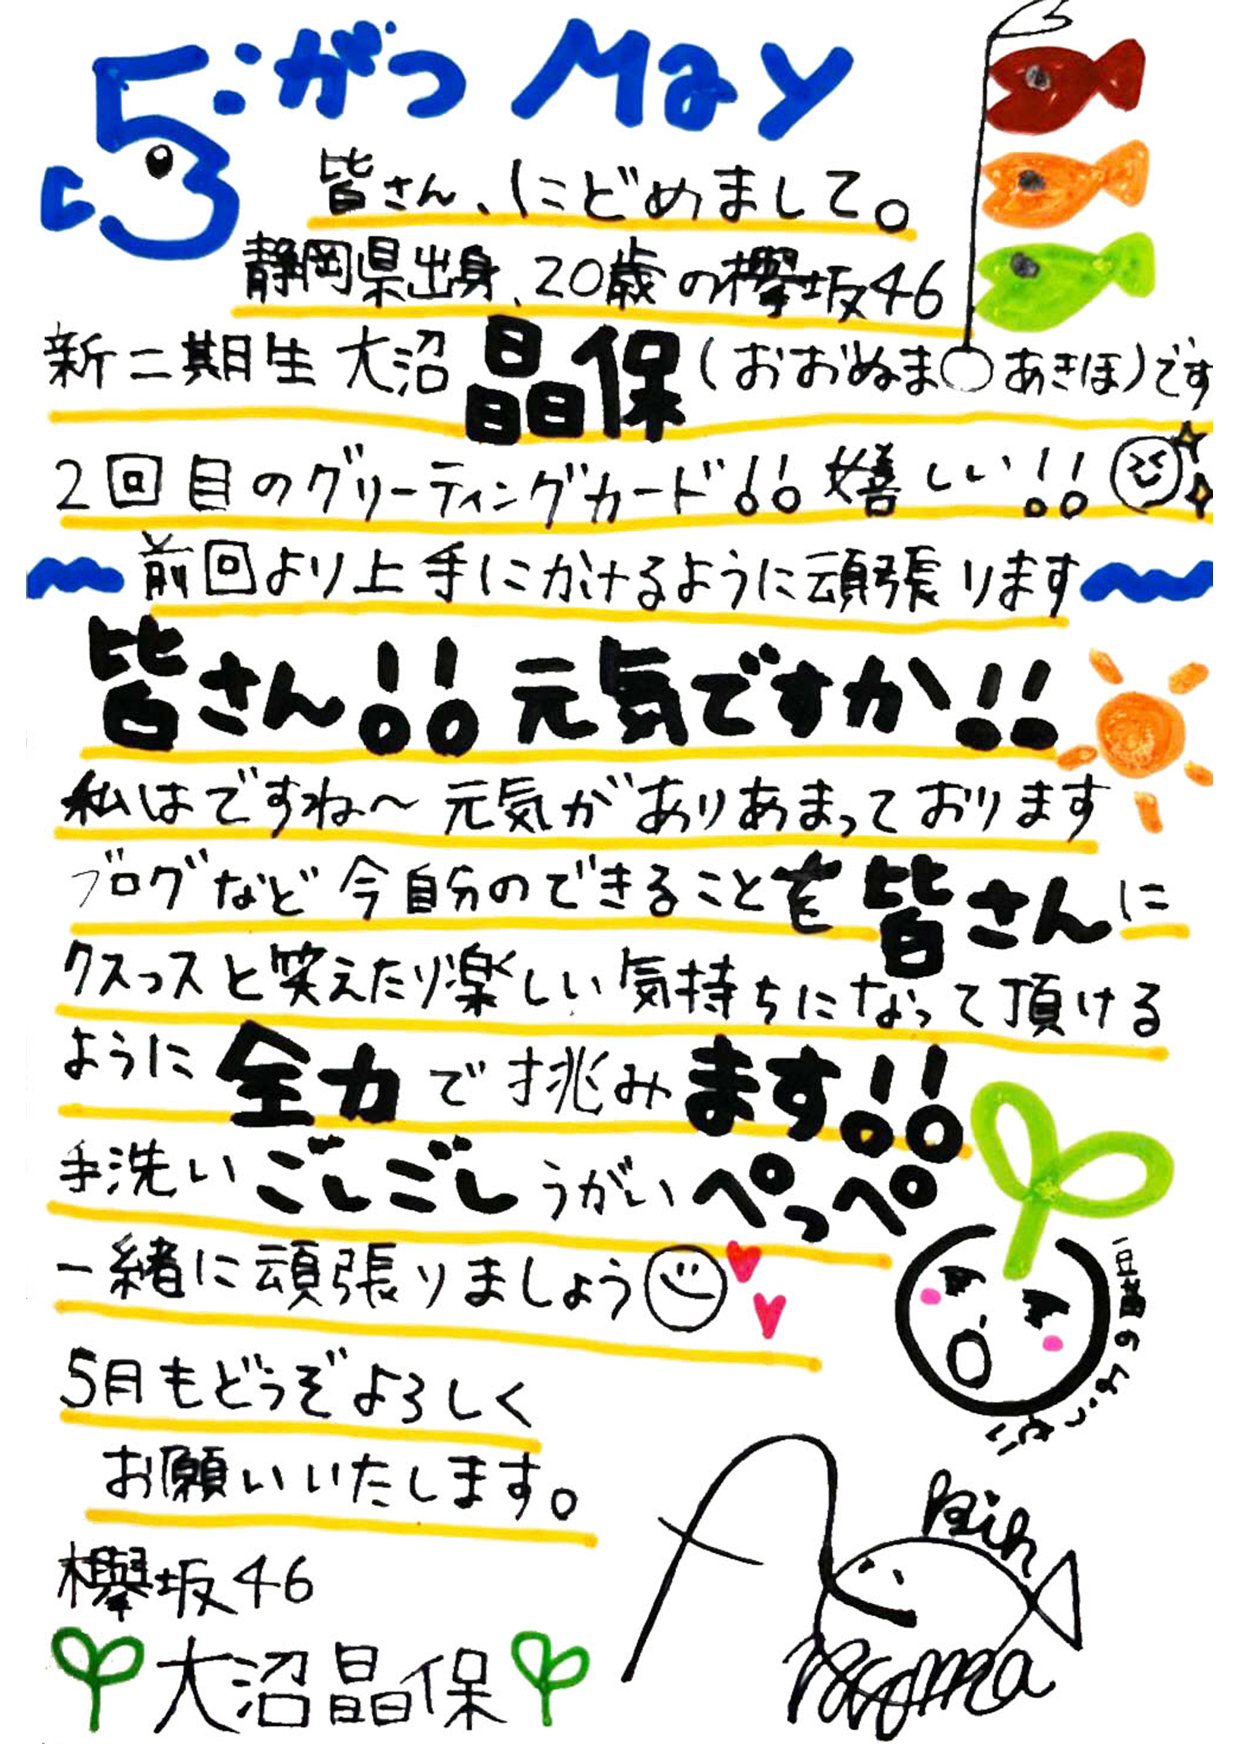 5がつ May
皆さん、にどめまして。
静岡県出身、20歳の欅坂46
新二期生 大沼晶保(おおぬま〇あきほ)です
2回目のグリーティングカード!! 嬉しい!!
前回より上手にかけるように頑張ります
皆さん!! 元気ですか!!
私はですね〜元気がありあまっております
ブログなど今自分のできることを皆さんに
クスっスと笑えたり楽しい気持ちになって頂ける
ように全力で挑みます!!
手洗いごしごしうがいぺっぺ
一緒に頑張りましょう
5月もどうぞよろしく
お願いいたします。
欅坂46
大沼晶保